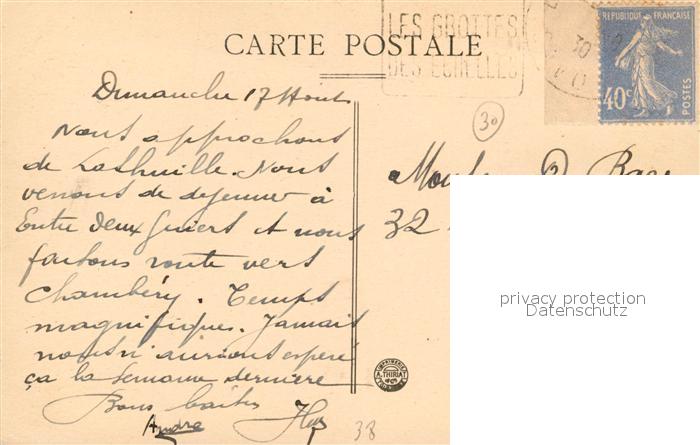 LES GROTTES
DES ECHELLES
REPUBLIQUE FRANÇAISE
40c
POSTES
CARTE POSTALE
30
Dimanche 17 Aout
Nous approchons
de Lathuille. Nous
venons de dejeuner à
Entre deux Guiers et nous
partons route vers
Chambéry. Temps
magnifique. Jamais
nous n'aurions espéré
ça la semaine dernière
Bons baisers
André
38
32
privacy protection
Datenschutz
IMPRIMERIE
A. THIRIAT